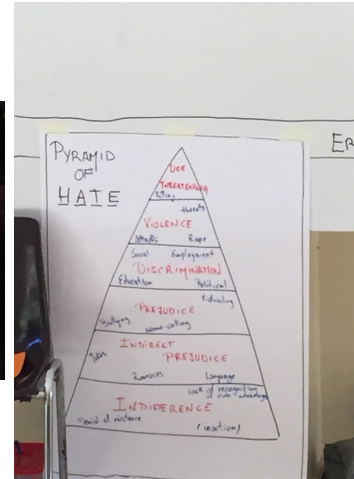 PYRAMID
OF
HATE
ER
LIFE
THREATENING
Killing
threats
VIOLENCE
Rape
Social Employment
DISCRIMINATION
Education Political
Ridiculing
PREJUDICE
Bullying name-calling
INDIRECT
Jokes PREJUDICE
Rumours Language
Lack of recognition
of own advantage
INDIFERENCE
Denial of existence
(inaction)